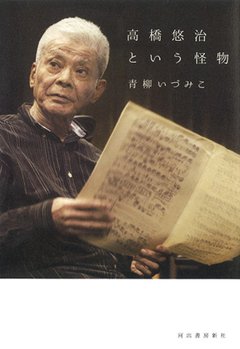 高橋悠治
という怪物
青柳いづみこ
河出書房新社